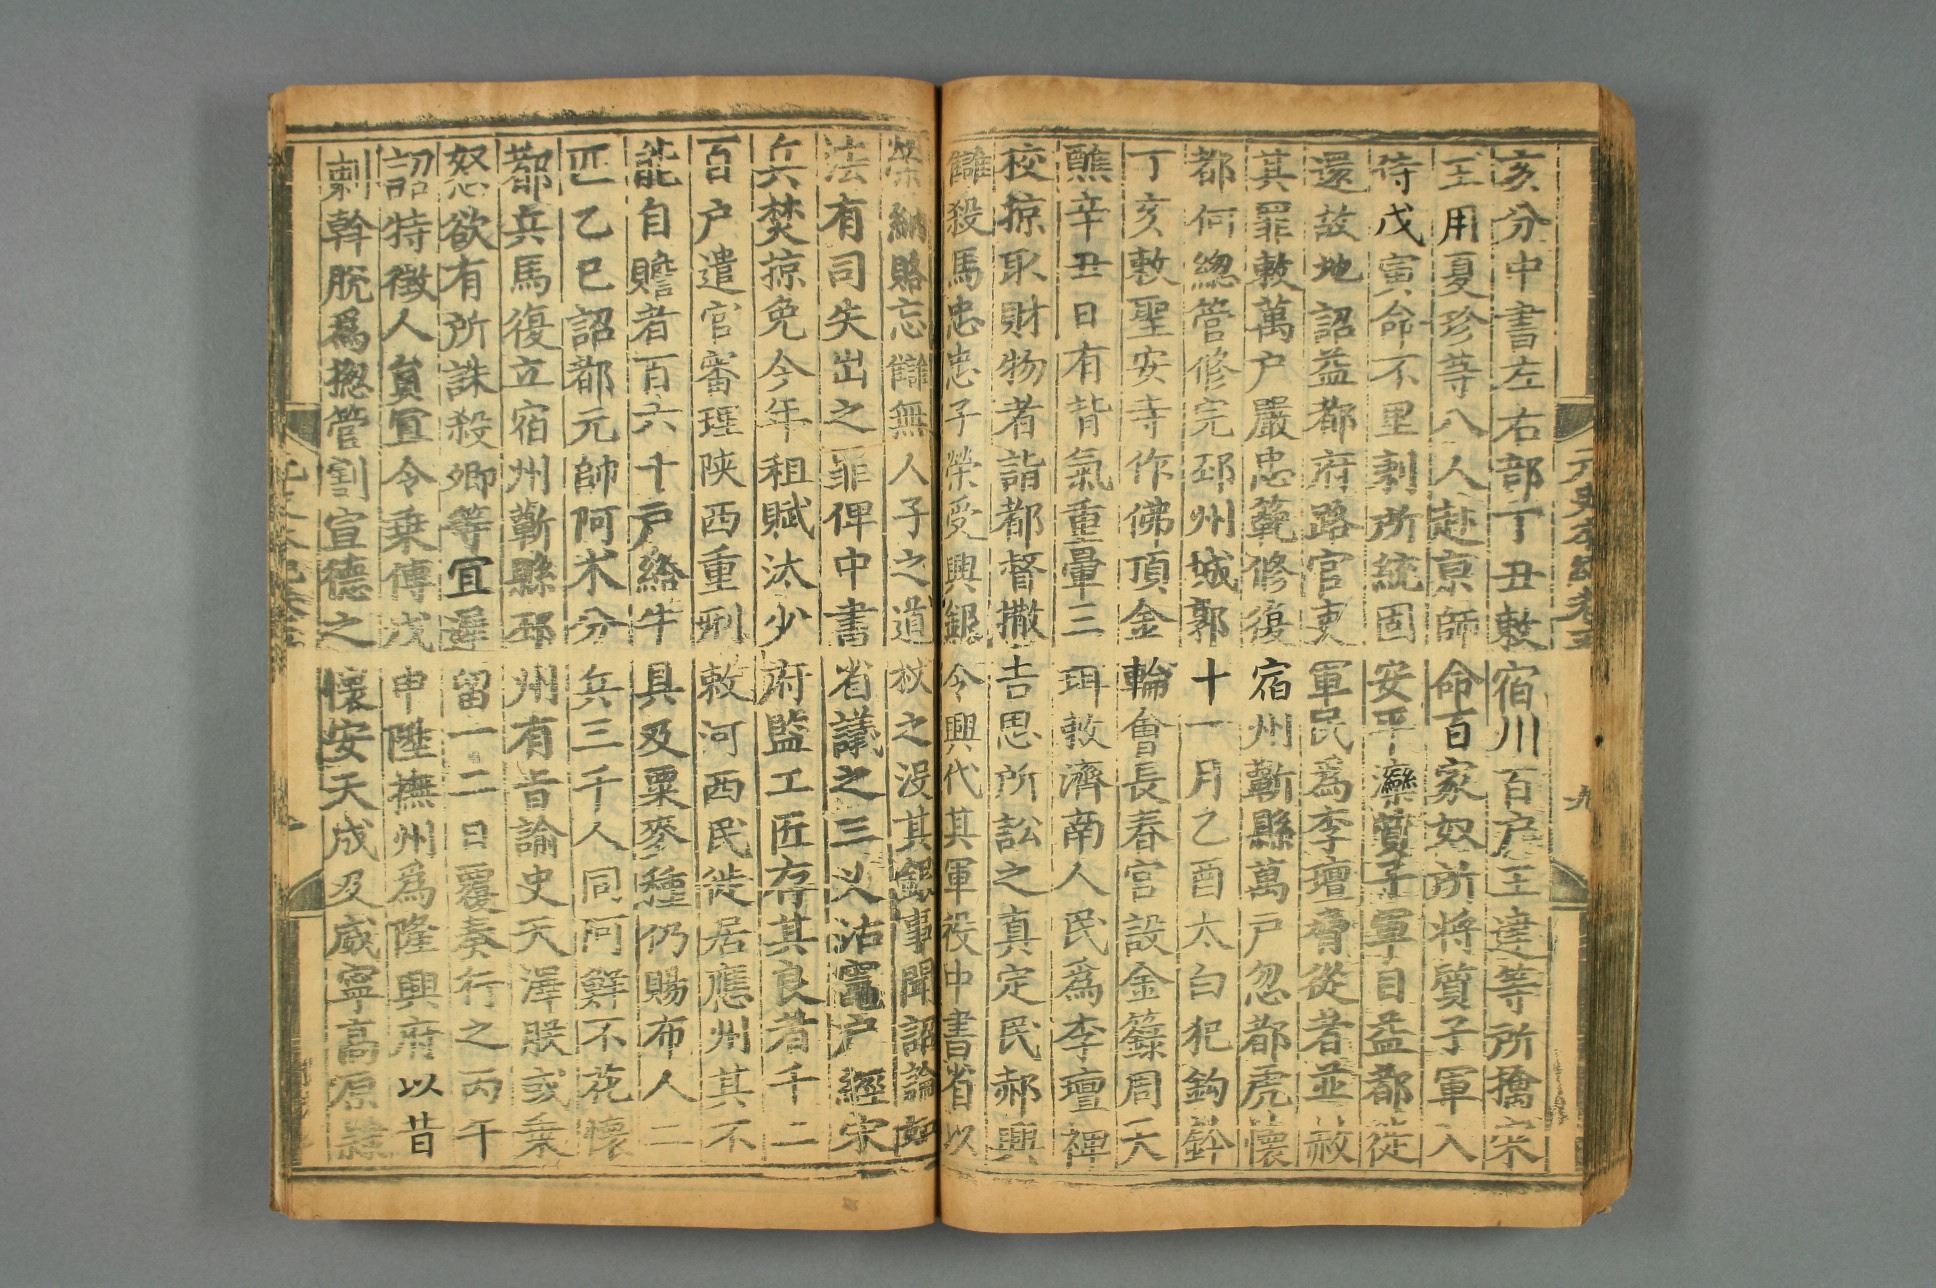 元史本紀卷五
九
亥分中書左右部丁丑敕宿川百户王達等所擒宋
王用夏珍等八人赴京師命百家奴所將質子軍入
侍戊寅命不里剌所統固安平灤質子軍自益都徙
還故地詔益都府路官吏軍民爲李璮脅從者並赦
其罪敕萬户嚴忠範修復宿州蘄縣萬户忽都虎懷
都何總管修完邳州城郭十一月乙酉太白犯鈎鈐
丁亥敕聖安寺作佛頂金輪會長春宮設金籙周天
醮辛丑日有背氣重暈三珥敕濟南人民爲李璮裨
校掠取財物者詣都督撒吉思所訟之真定民郝興
讎殺馬忠忠子榮受興銀令興代其軍役中書省以
榮納賂忘讎無人子之道杖之沒其銀事聞詔論如
法有司失出之罪俾中書省議之三乂沽竈户經宋
兵焚掠免今年租賦汰少府監工匠存其良者千二
百户遣官審理陝西重刑敕河西民徙居應州其不
能自贍者百六十户給牛具及粟麥種仍賜布人二
匹乙巳詔都元帥阿朮分兵三千人同阿鮮不花懷
都兵馬復立宿州蘄縣邳州有旨諭史天澤朕或乘
怒欲有所誅殺卿等宜遲留一二日覆奏行之丙午
詔特徵人員宜令乘傳戊申陞撫州爲隆興府以昔
剌斡脫爲揔管割宣德之懷安天成及威寧高原隸